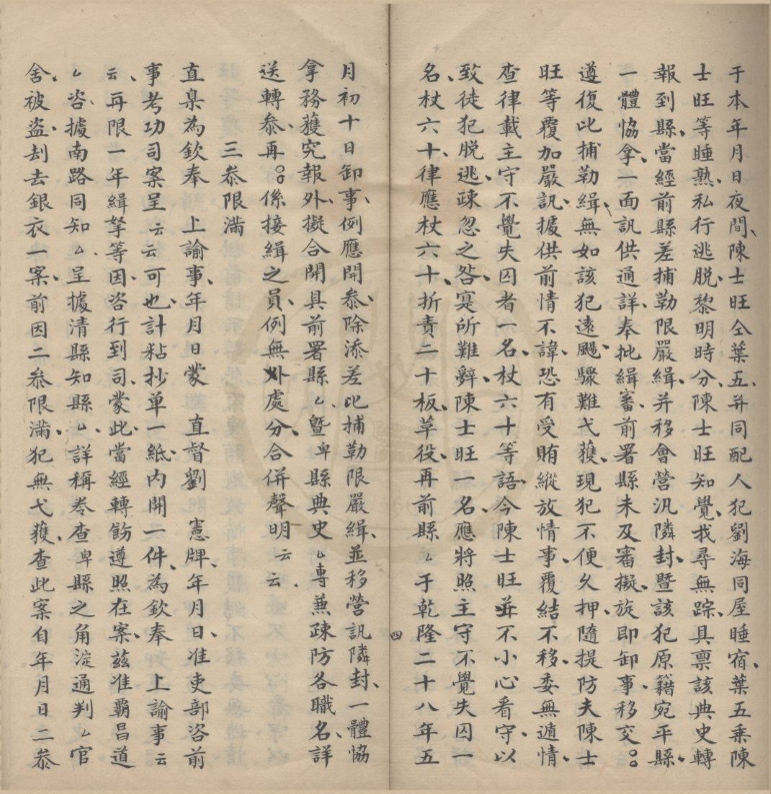 于本年月日夜間陳士旺仝葉五并同配人犯劉海同屋睡宿葉五乘陳
士旺等睡熟私行逃脫黎明時分陳士旺知覺找尋無踪具禀該典史轉
報到縣當經前縣差捕勒限嚴緝并移會營汛隣封暨該犯原籍宛平縣
一體協拿一面訊供通詳奉批緝審前署縣未及審擬旋即卸事移交○○
遵復比捕勒緝無如該犯遠颺驟難弋獲現犯不便久押隨提防夫陳士
旺等覆加嚴訊據供前情不諱恐有受賄縱放情事覆結不移委無遁情
查律載主守不覺失囚者一名杖六十等語今陳士旺並不小心看守以
致徒犯脫逃疎忽之咎寔所難辭陳士旺一名應將照主守不覺失囚一
名杖六十律應杖六十折責二十板革役再前縣厶于乾隆二十八年五
月初十日卸事例應開叅除添差比捕勒限嚴緝並移營訊隣封一體協
拿務獲究報外擬合開具前署縣厶暨卑縣典史厶專兼疎防各職名詳
送轉叅再○○係接緝之員例無外處分合併聲明云云
三叅限滿
直臬為欽奉 上諭事年月日蒙 直督劉 憲牌年月日准吏部咨前
事考功司案呈云云可也計粘抄單一紙內開一件為欽奉上諭事云
云再限一年緝拏等因咨行到司蒙此當經轉飭遵照在案茲准霸昌道
厶咨據南路同知厶呈據清縣知縣厶詳稱卷查卑縣之角淀通判厶官
舍被盜刦去銀衣一案前因二叅限滿犯無弋獲查此案自年月日二叅
四